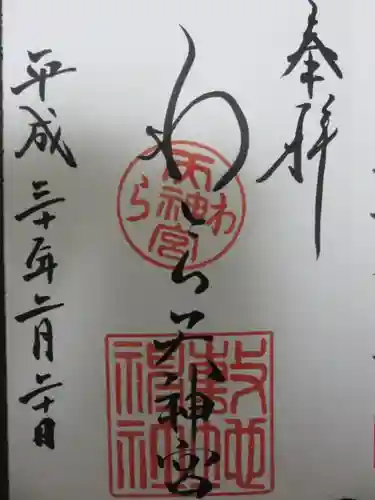 奉拝
わら天神宮
わら天神宮
敷地神社
平成三十年二月二十日